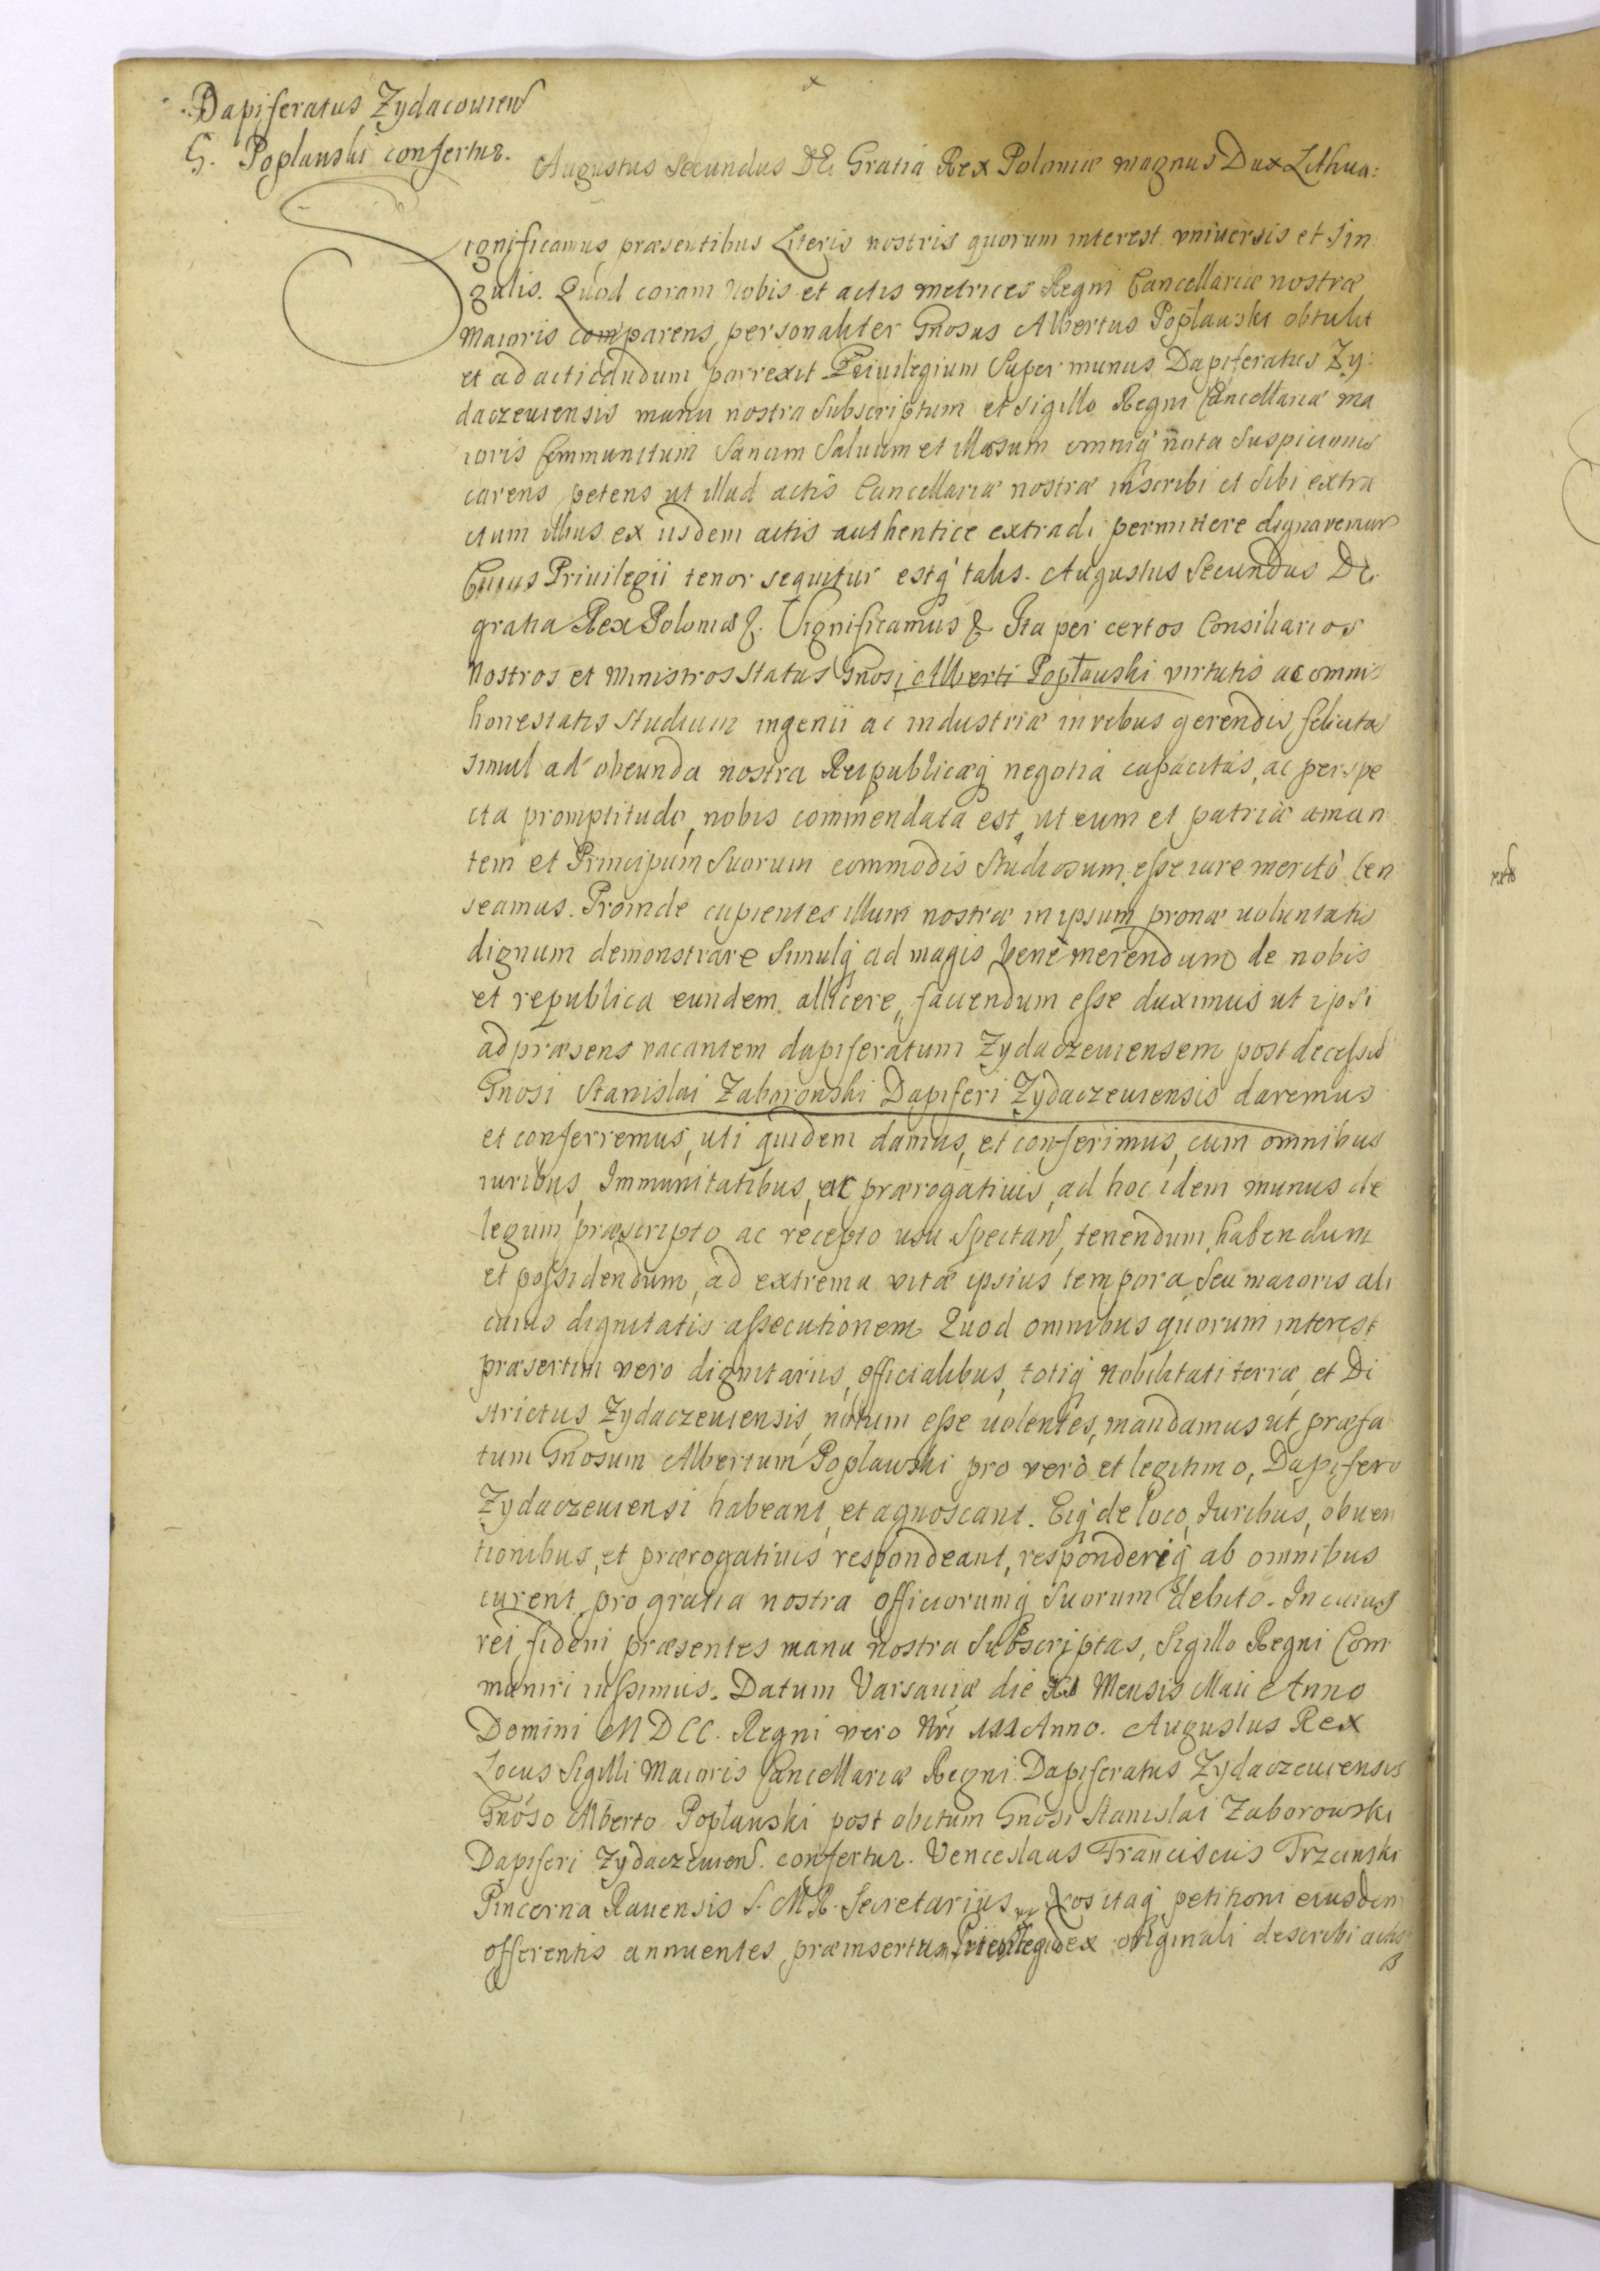 Dapiferatus Zydacouien
G. Poplauski confertur.
Augustus Secundus DEi Gratia Rex Poloniæ magnus Dux Lithua:
Significamus præsentibus Literis nostris quorum interest vniuersis et Sin
gulis. Quod coram Nobis et actis metrices Regni Cancellariæ nostræ
Maioris comparens personaliter Gnosus Albertus Poplauski obtulit
et ad acticandum porrexit Priuilegium Super munus Dapiferatus Zy:
daczeuiensis manu nostra Subscriptum et sigillo Regni Cancellariæ ma
ioris Communitum Sanum Saluum et illæsum omniq nota Suspicionis
carens petens ut illud actis Cancellariæ nostræ inscribi et Sibi extra
ctum illius ex iisdem actis authentice extradi permittere dignaremur
Cuius Priuilegii tenor sequitur estq talis. Augustus Secundus Di
gratia Rex Poloniæ &. Significamus & Ita per certos Consiliarios
Nostros et Ministros Status Gnosi Alberti Popłauski virtutis ac omnis
honestatis Studium ingenii ac industriæ in rebus gerendis felicitas
simul ad obeunda nostra Reipublicæq negotia capacitas, ac perspe
cta promptitudo, nobis commendata est, ut eum et patriæ aman
tem et Principum Suorum commodis Studiosum esse iure merito Cen
seamus. Proinde cupientes illum nostræ in ipsum pronæ uoluntatis
dignum demonstrare Simulq ad magis bene merendum de nobis
et republica eundem allicere, faciendum esse duximus ut ipsi
ad præsens vacantem dapiferatum Zydaczeuiensem post decessum
Gnosi Stanislai Zaborowski Dapiferi Zydaczeuiensis daremus
et conferremus, uti quidem damus, et conferimus, cum omnibus
iuribus, Immunitatibus, ac prærogatiuis, ad hoc idem munus de
legum præscripto ac recepto usu Spectan, tenendum habendum
et possidendum, ad extrema vitæ ipsius tempora, Seu maioris ali
cuius dignitatis assecutionem Quod omnibus quorum interest
præsertim vero dignitariis, officialibus, totiq Nobilitati terræ, et Di
strictus Zydaczeuiensis, notum esse uolentes, mandamus ut præfa
tum Gnosum Albertum Poplawski pro vero et legitimo, Dapifero
Zydaczeuiensi habeant, et agnoscant. Eiq de loco, Iuribus, obuen
tionibus, et prærogatiuis respondeant, responderiq ab omnibus
curent, pro gratia nostra officiorumq Suorum debito. In cuius
rei fidem præsentes manu nostra Subscriptas, Sigillo Regni Com
muniri iussimus. Datum Varsauiæ die Mensis Maii Anno
Domini MDCC. Regni vero Nri III Anno. Augustus Rex
Locus Sigilli Maioris Cancellariæ Regni. Dapiferatus Zydaczeuiensis
Gnoso Alberto Poplauski post obitum Gnosi Stanislai Zaborowski
Dapiferi Zydaczeuien. confertur. Venceslaus Franciscus Trzcinski
Pincerna Rauensis S. M. R. Secretarius. Nos itaq petitioni eiusdem
offerentis annuentes, præinsertum ex originali describi actis